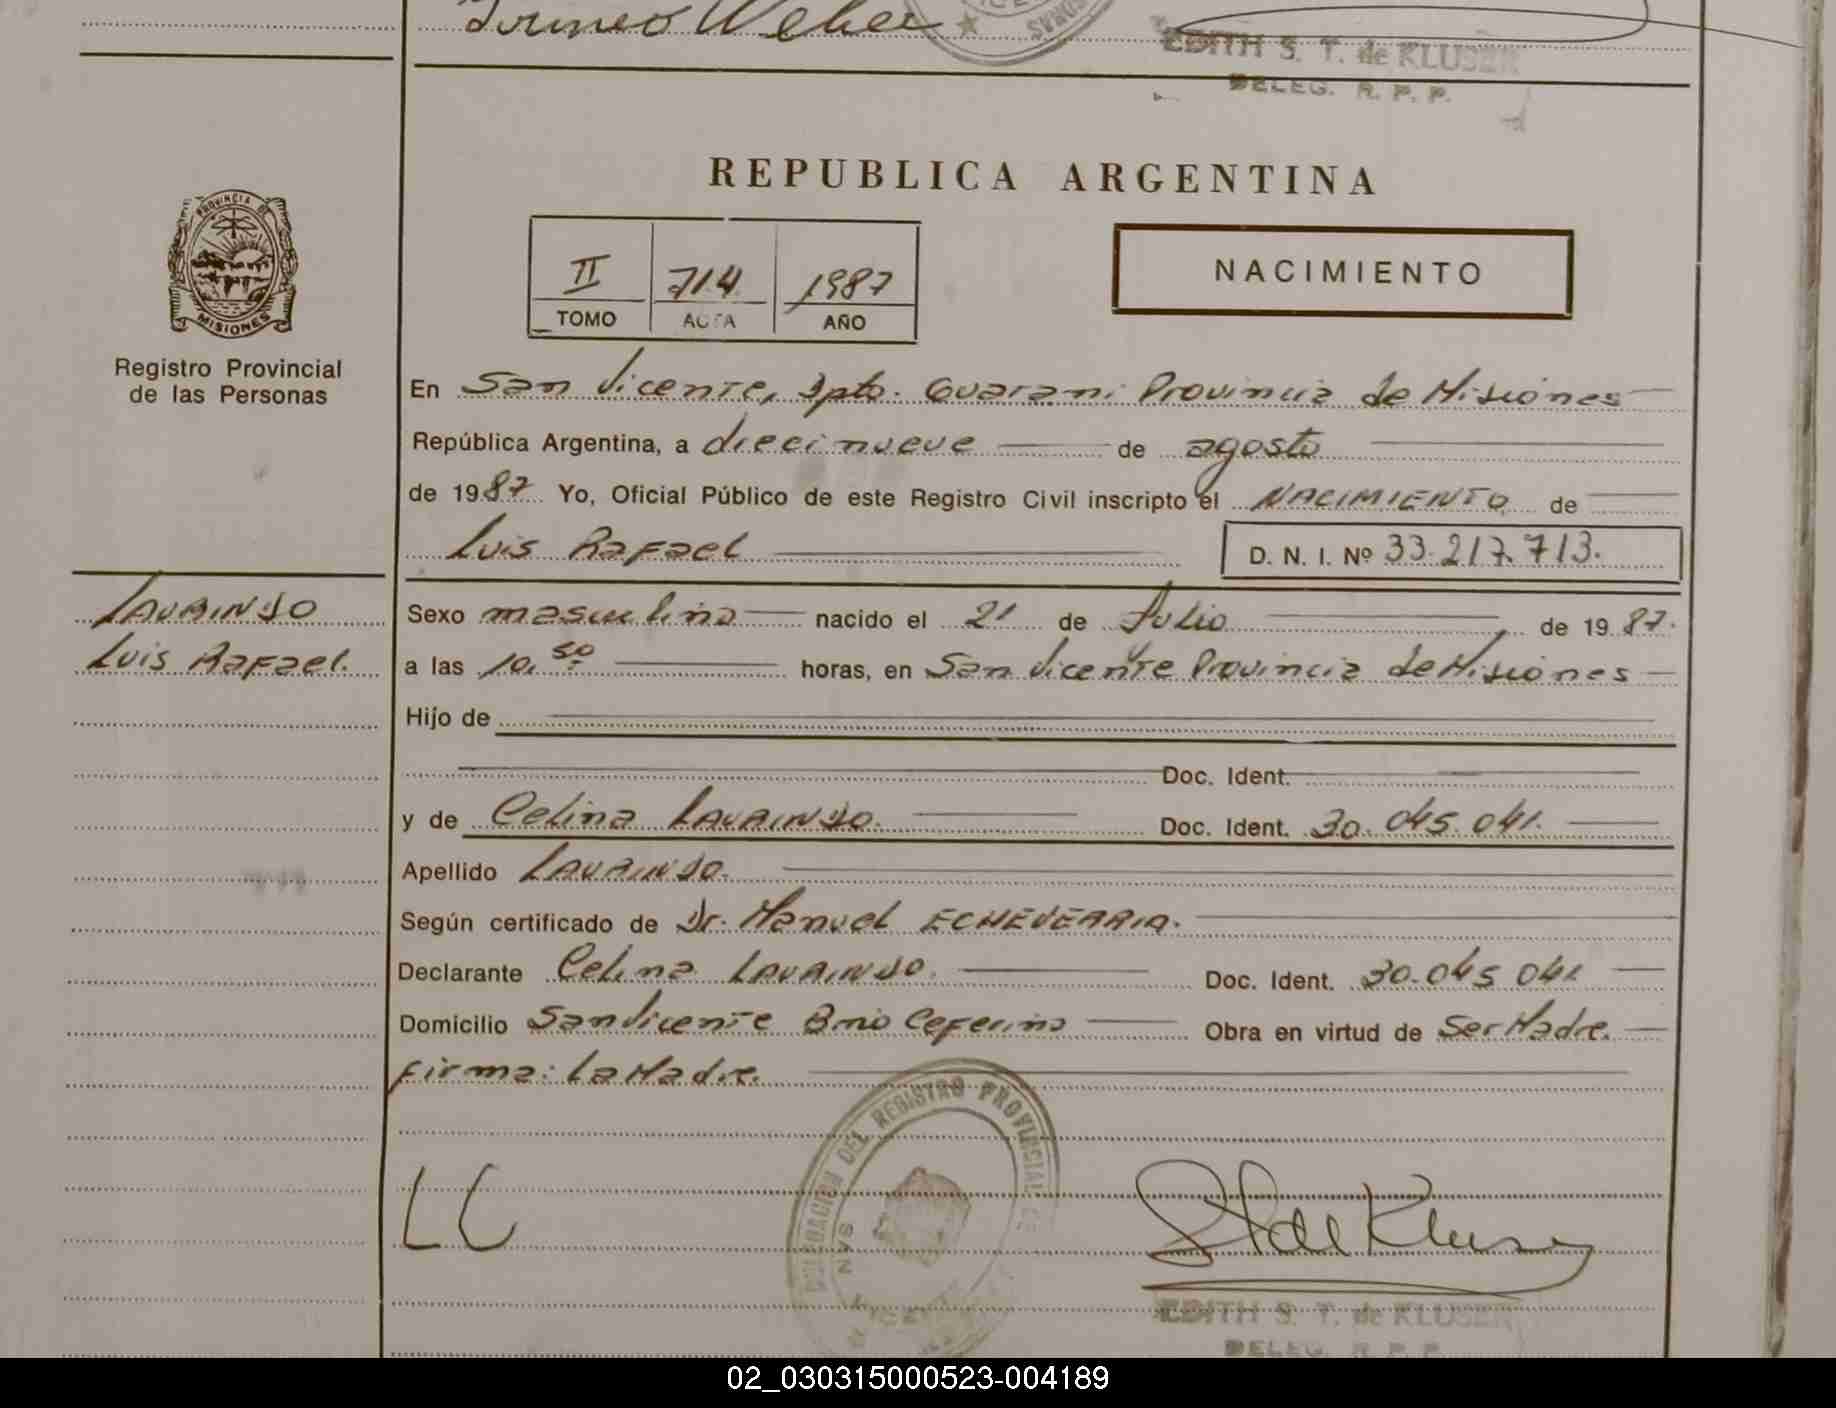 Irineo Weber
EDITH S. T. de KLUSER
DELEG. R. P. P.
REPUBLICA ARGENTINA
PROVINCIA DE
MISIONES
II 714 1987
TOMO ACTA AÑO
NACIMIENTO
Registro Provincial
de las Personas
En San Vicente, Dpto. Guarani Provincia de Misiones
República Argentina, a diecinueve de agosto
de 1987 Yo, Oficial Público de este Registro Civil inscripto el NACIMIENTO de
Luis Rafael D. N. I. Nº 33.217.713.
LAURINDO
Luis Rafael.
Sexo masculino nacido el 21 de Julio de 1987.
a las 10,50 horas, en San Vicente Provincia de Misiones
Hijo de
Doc. Ident.
y de Celina LAURINDO. Doc. Ident. 30.045.041.
Apellido LAURINDO.
Según certificado de Dr. Manuel ECHEVERRIA.
Declarante Celina LAURINDO. Doc. Ident. 30.045.041
Domicilio San Vicente Brio Ceferino Obra en virtud de Ser Madre.
Firma: La Madre.
LC
DELEGACION DEL REGISTRO PROVINCIAL DE
SAN VICENTE
EDITH S. T. de KLUSER
DELEG. R. P. P.
02_030315000523-004189